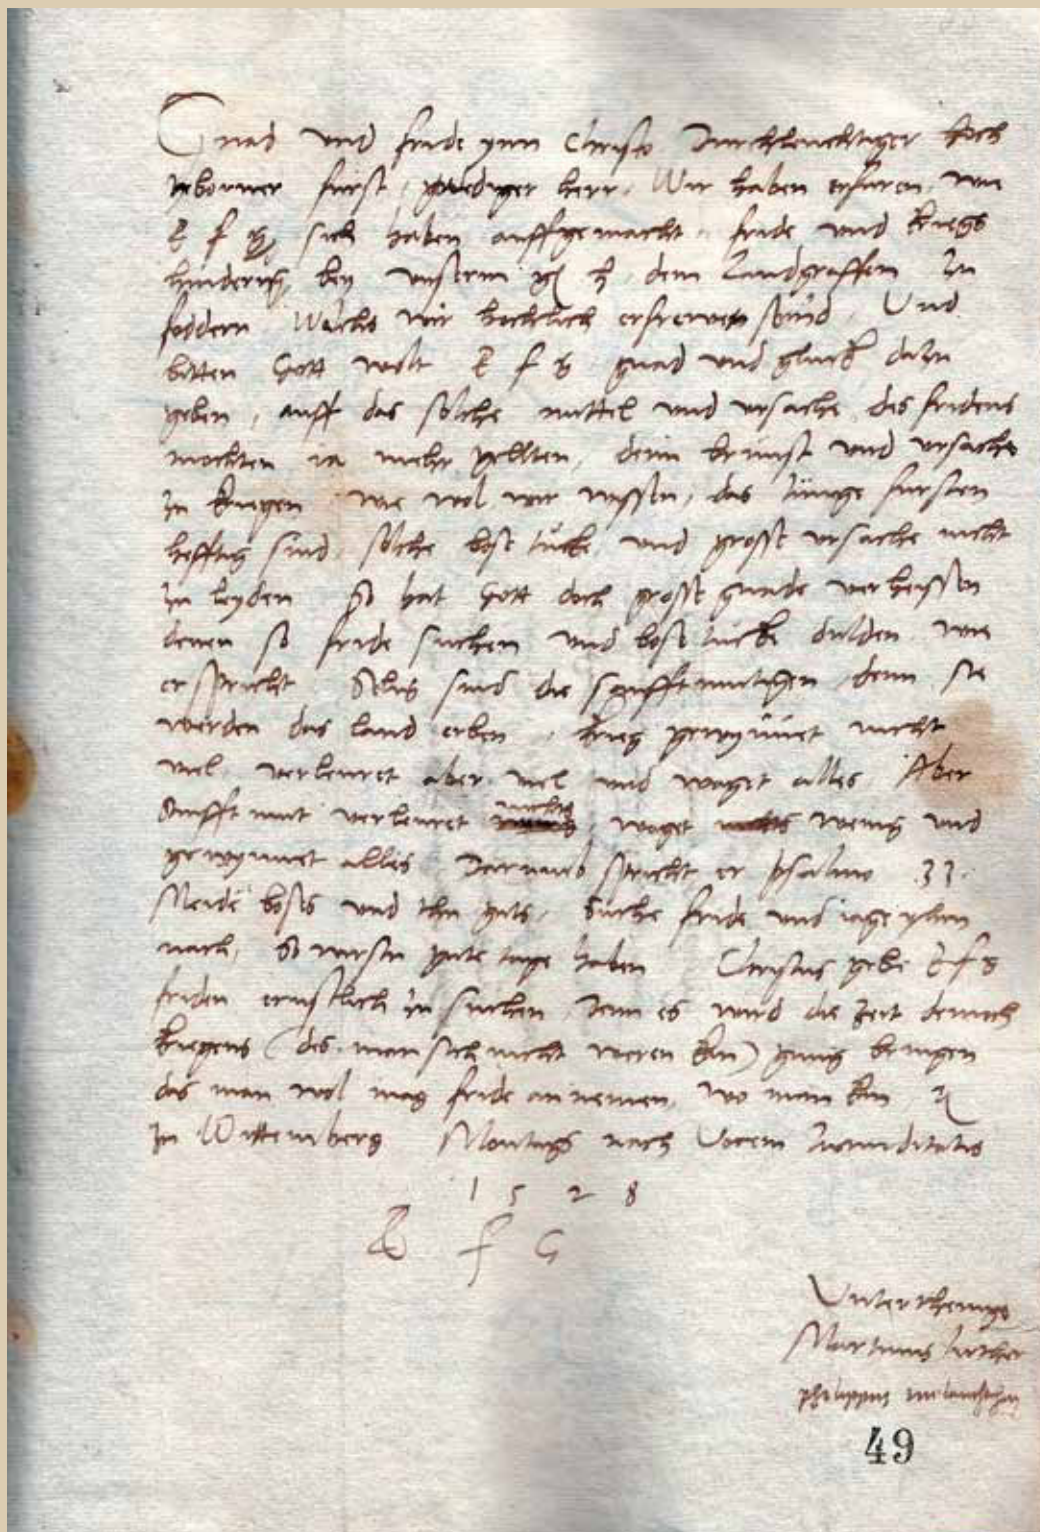 Gnad und fride ynn Christo Durchleuchtiger hoch
geborner furst, gnediger herr, Wir haben erfaren, wie
E f g sich haben auffgemacht, fride und kriegs
hinderung bey unserm g h dem Landgraffen zu
foddern Wilchs wir hochlich erfrewet seind, Und
bitten Gott wolt E f g gnad und gluck dazu
geben, auff das solche mittel und ursache des fridens
mochten ia mehr gellten, denn brunst und ursache
zu kriegen wie wol wir wissen, das iunge fursten
hefftig sind, solche bose tucke und grosse ursache nicht
zu leyden So hat Gott doch grosse gnade verheissen
denen so fride suchen und bose tucke dulden wie
er spricht Selig sind die senfftmutigen denn sie
werden das land erben, krieg gewynnet nicht
viel, verleuret aber viel und waget alles Aber
Sanfftmut verleuret nichts, waget wenig und
gewynnet alles Darumb spricht er psalmo 33.
Meide boses und thu guts, Suche fride und iage yhm
nach, So wirstu gute tage haben Christus gebe E f g
friden ernstlich zu suchen, Denn es wird die zeit dennoch
kriegens (des man sich nicht weren kan) gnug bringen
das man wol mag fride annemen, wo man kan,
zu Wittemberg Montags nach Vocem Iucunditatis
1 5 2 8
E f G
Untertheinige
Martinus Luther
philippus melanchthon
49